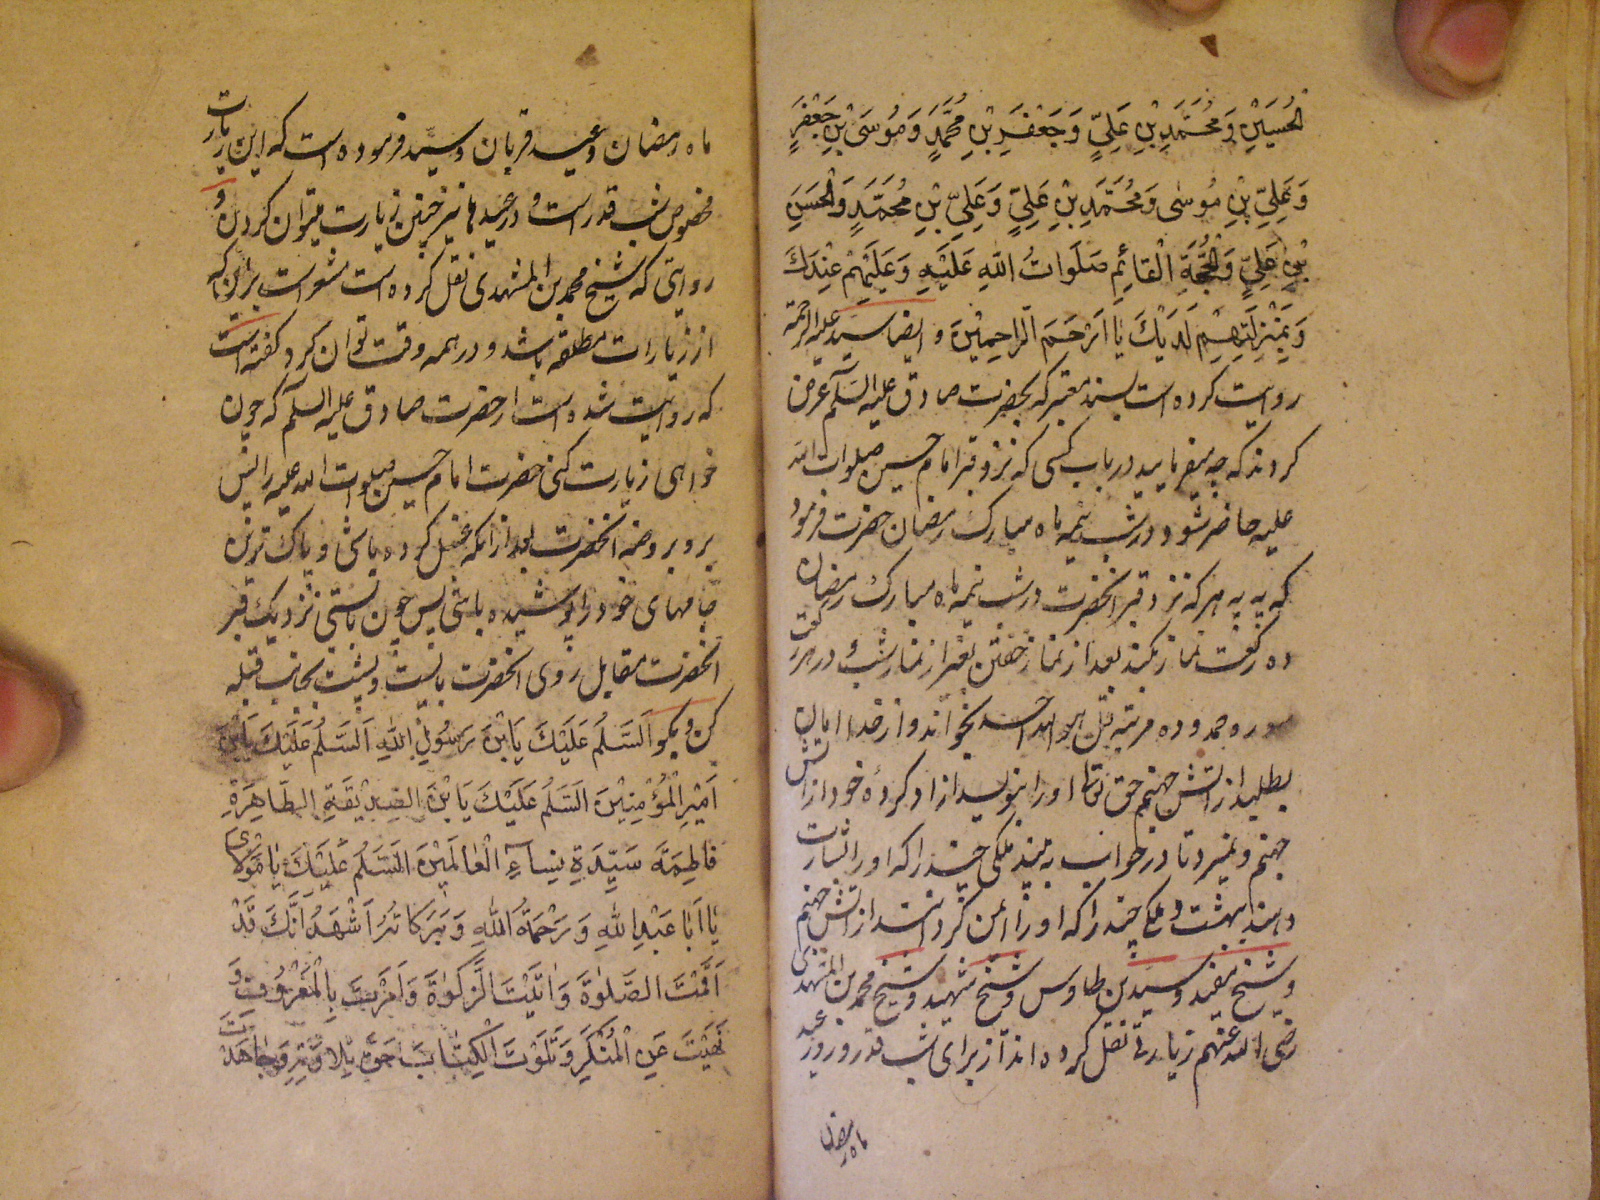 الْحُسَیْنِ وَ مُحَمَّدِ بْنِ عَلِیٍّ وَ جَعْفَرِ بْنِ مُحَمَّدٍ وَ مُوسَی بْنِ جَعْفَرٍ
وَ عَلِیِّ بْنِ مُوسٰی وَ مُحَمَّدِ بْنِ عَلِیٍّ وَ عَلِیِّ بْنِ مُحَمَّدٍ وَ الْحَسَنِ
بْنِ عَلِیٍّ وَ الْحُجَّةِ الْقَائِمِ صَلَوَاتُ اللّٰهِ عَلَیْهِ وَ عَلَیْهِمْ عِنْدَكَ
وَ بِمَنْزِلَتِهِمْ لَدَیْكَ یَا اَرْحَمَ الرَّاحِمِیْنَ و ایضا سید علیه الرحمة
روایت کرده است بسند معتبر که بحضرت صادق علیه السلم عرض
کردند که چه میفرمایید در باب کسی که نزد قبر امام حسین صلوات الله
علیه حاضر شود در شب نیمه ماه مبارک رمضان حضرت فرمود
که به به هر که نزد قبر انحضرت در شب نیمه ماه مبارک رمضان
ده رکعت نماز بکند بعد از نماز خفتن بغیر از نماز شب و در هر رکعت
سوره حمد و ده مرتبه قل هو الله احد بخواند و از خدا امان
بطلبد از اتش جهنم حق تعالی او را بنویسد ازاد کردهٔ خود از اتش
جهنم و نمیرد تا در خواب به بیند ملکی چند را که او را بشارت
دهند ببهشت و ملکی چند را که او را ایمن گردانند از اتش جهنم
و شیخ مفید و سید بن طاوس و شیخ شهید و شیخ محمد بن المشهدی
رضی الله عنهم زیارتی نقل کرده اند از برای شب قدر و روز عید
ماه رمضان
ماه رمضان و عید قربان و سید فرموده است که این زیارت
مخصوص شب قدر است و در عیدها نیز چنین زیارت میتوان کردن و
روایتی که شیخ محمد بن المشهدی نقل کرده است مشعر است بر این که
از زیارات مطلقه باشد و در همه وقت توان کرد گفته است
که روایت شده است از حضرت صادق علیه السلم که چون
خواهی زیارت کنی حضرت امام حسین صلوات الله علیه را پس
برو بروضه انحضرت بعد از انکه غسل کرده باشی و پاک ترین
جامهای خود را پوشیده باشی پس چون بایستی نزدیک قبر
انحضرت مقابل روی انحضرت بایست و پشت بجانب قبله
کن و بکو اَلسَّلَمُ عَلَیْكَ یَا بْنَ رَسُولِ اللّٰهِ اَلسَّلَمُ عَلَیْكَ یَا بْنَ
اَمِیْرِ الْمُؤْمِنِیْنَ اَلسَّلَمُ عَلَیْكَ یَا بْنَ الصِّدِّیْقَةِ الطَّاهِرَةِ
فَاطِمَةَ سَیِّدَةِ نِسَاءِ الْعَالَمِیْنَ اَلسَّلَمُ عَلَیْكَ یَا مَوْلَایَ
یَا اَبَا عَبْدِ اللّٰهِ وَ رَحْمَةُ اللّٰهِ وَ بَرَکَاتُهُ اَشْهَدُ اَنَّكَ قَدْ
اَقَمْتَ الصَّلٰوةَ وَ اٰتَیْتَ الزَّکٰوةَ وَ اَمَرْتَ بِالْمَعْرُوْفِ وَ
نَهَیْتَ عَنِ الْمُنْکَرِ وَ تَلَوْتَ الْکِتَابَ حَقَّ تِلَاوَتِهِ وَ جَاهَدْتَ